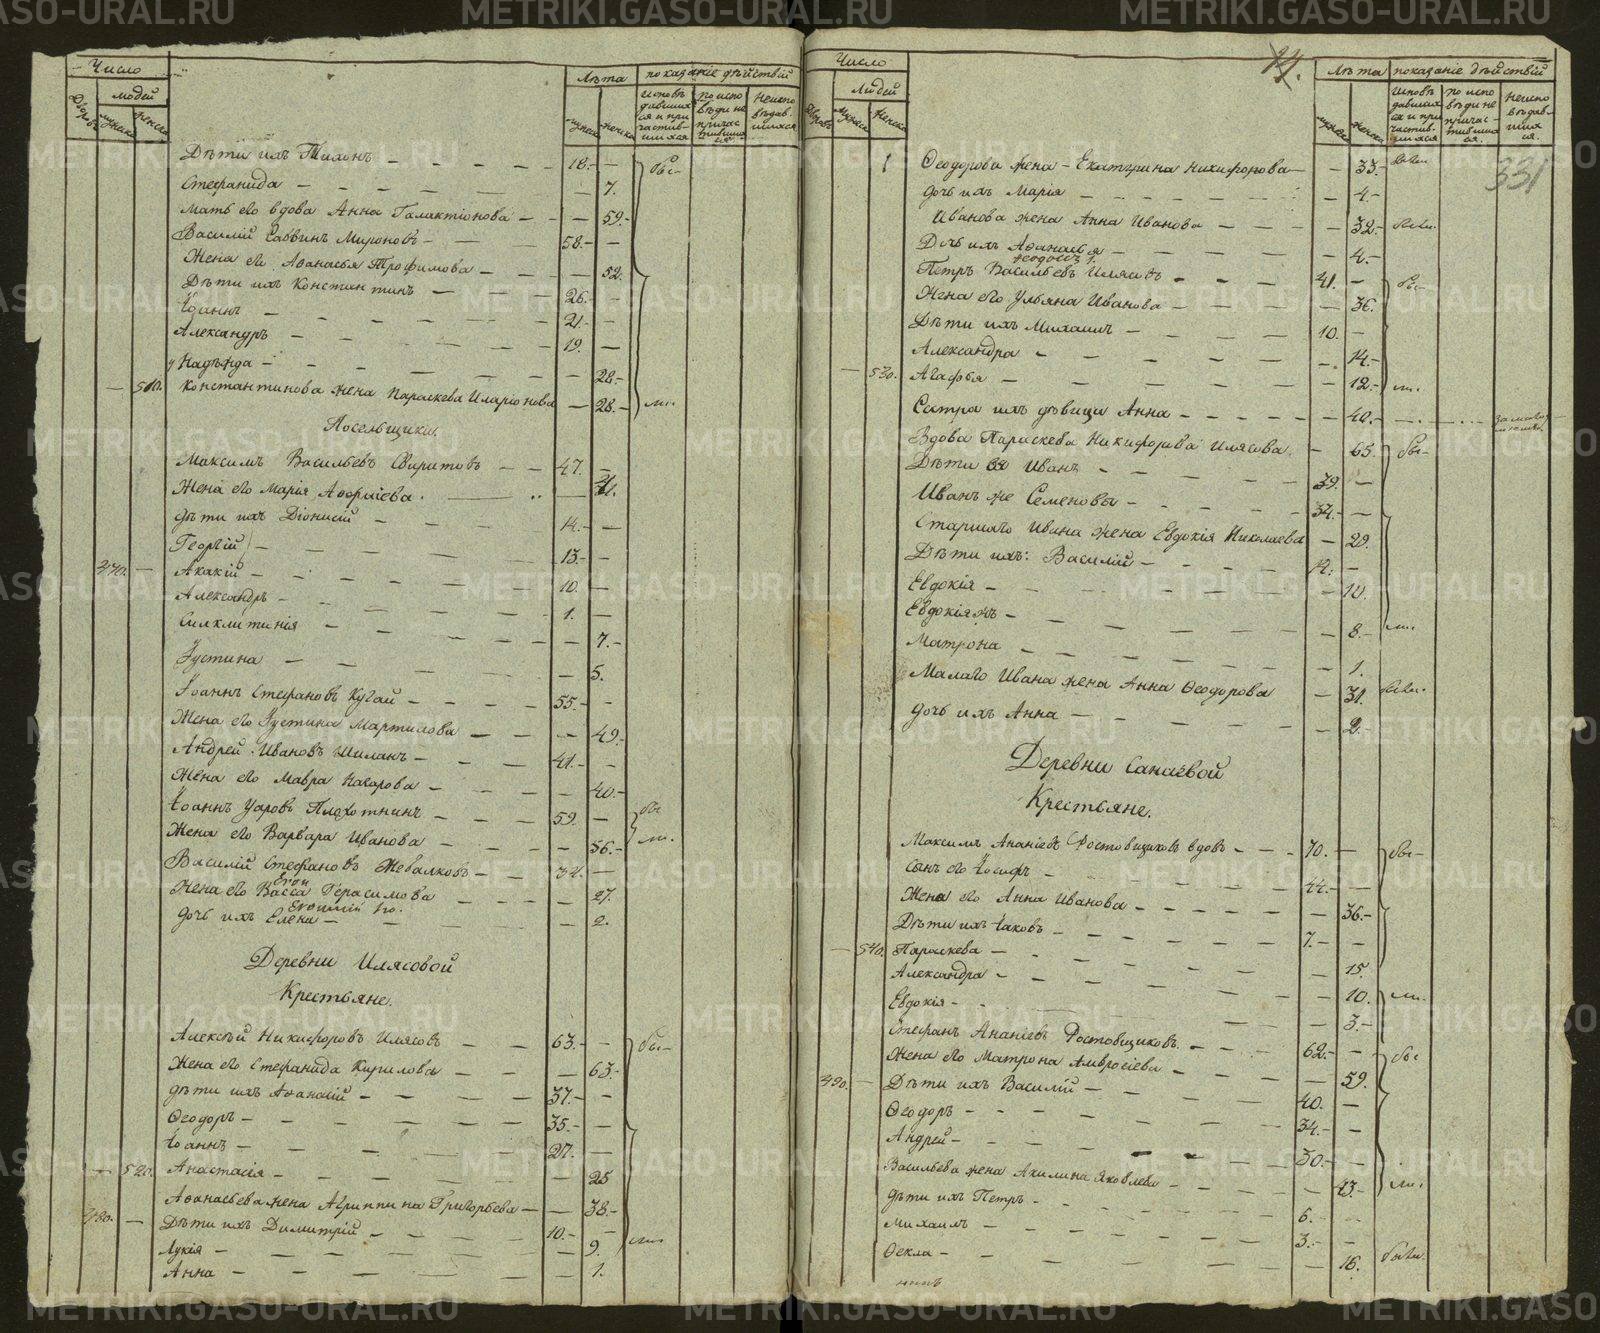 Число
Людей
Дворовъ
мужеска
женска
Лѣта
мужеска
женска
показаніе дѣйствій
исповѣдавшихся и причастившихся
по исповѣди не причастившихся
неисповѣдавшихся
Дѣти ихъ Тихонъ 18.
Стефанида 7.
Мать его вдова Анна Галактіонова 59.
Василій Саввинъ Мироновъ 58.
Жена его Аѳанасія Трофимова 52.
Дѣти ихъ Константинъ 26.
Іоаннъ 21.
Александръ 19.
Надѣжда 22.
510. Константинова жена Параскева Иларіонова 28.
Посельщики.
Максимъ Васильевъ Свиритовъ 47.
Жена его Марія
дѣти ихъ Діонисій 14.
Георгій 13.
470. Акакій 10.
Александръ 1.
Синклитикія 7.
Іустина 5.
Іоаннъ Стефановъ Кугай 55.
Жена его Іустина Мартинова 49.
Андрей Ивановъ Шиланъ 41.
Жена его Мавра Назарова 40.
Іоаннъ Уаровъ Плохотнинъ 59.
Жена его Варвара Иванова 56.
Василій Стефановъ Жевалковъ 34.
Жена его Васса Герасимова 27.
дочь ихъ Елена 2.
Деревни Илясовой
Крестьяне.
Алексѣй Никифоровъ Илясовъ 63.
Жена его Стефанида Кирилова 63.
дѣти ихъ Аѳанасій 37.
Ѳеодоръ 35.
Іоаннъ 27.
520. Анастасія 25
Аѳанасьева жена Агриппина Григорьева 38.
480. Дѣти ихъ Димитрій 10.
Лукія 9.
Анна 1.
Число
Людей
Дворовъ
мужеска
женска
Лѣта
мужеска
женска
показаніе дѣйствій
исповѣдавшихся и причастившихся
по исповѣди не причастившихся
неисповѣдавшихся
331
Ѳеодорова жена Екатерина Никифорова 33.
дочь ихъ Марія 4.
Иванова жена Анна Иванова 32.
Дочь ихъ Аѳанасья 4.
Петръ Васильевъ Илясовъ 41.
Жена его Ульяна Иванова 36.
Дѣти ихъ Михаилъ 10.
Александра 14.
530. Агафья 12.
Сестра ихъ дѣвица Анна 40.
Вдова Параскева Никифорова Илясова 65.
Дѣти ея Иванъ 39.
Иванъ же Семеновы 34.
Старшаго Ивана жена Евдокія Николаева 29.
Дѣти ихъ: Василій
Евдокія
Евдокія жъ 8.
Матрона 1.
Малаго Ивана жена Анна Ѳеодорова 31.
дочь ихъ Анна 2.
Деревни Санаевой
Крестьяне.
Максимъ Ананіевъ Ростовщиковъ вдовъ 70.
сынъ его Іосифъ 44.
Жена его Анна Иванова 36.
Дѣти ихъ Іаковъ 7.
540. Параскева 15.
Александра 10.
Евдокія 3.
Стефанъ Ананіевъ Ростовщиковъ 62.
Жена его Матрона Амвросіева 59.
490. Дѣти ихъ Василій 40.
Ѳеодоръ 34.
Андрей 30.
Васильева жена Акилина Яковлева 43.
дѣти ихъ Петръ 6.
Михаилъ 3.
Ѳекла 16.
METRIKI.GASO-URAL.RU